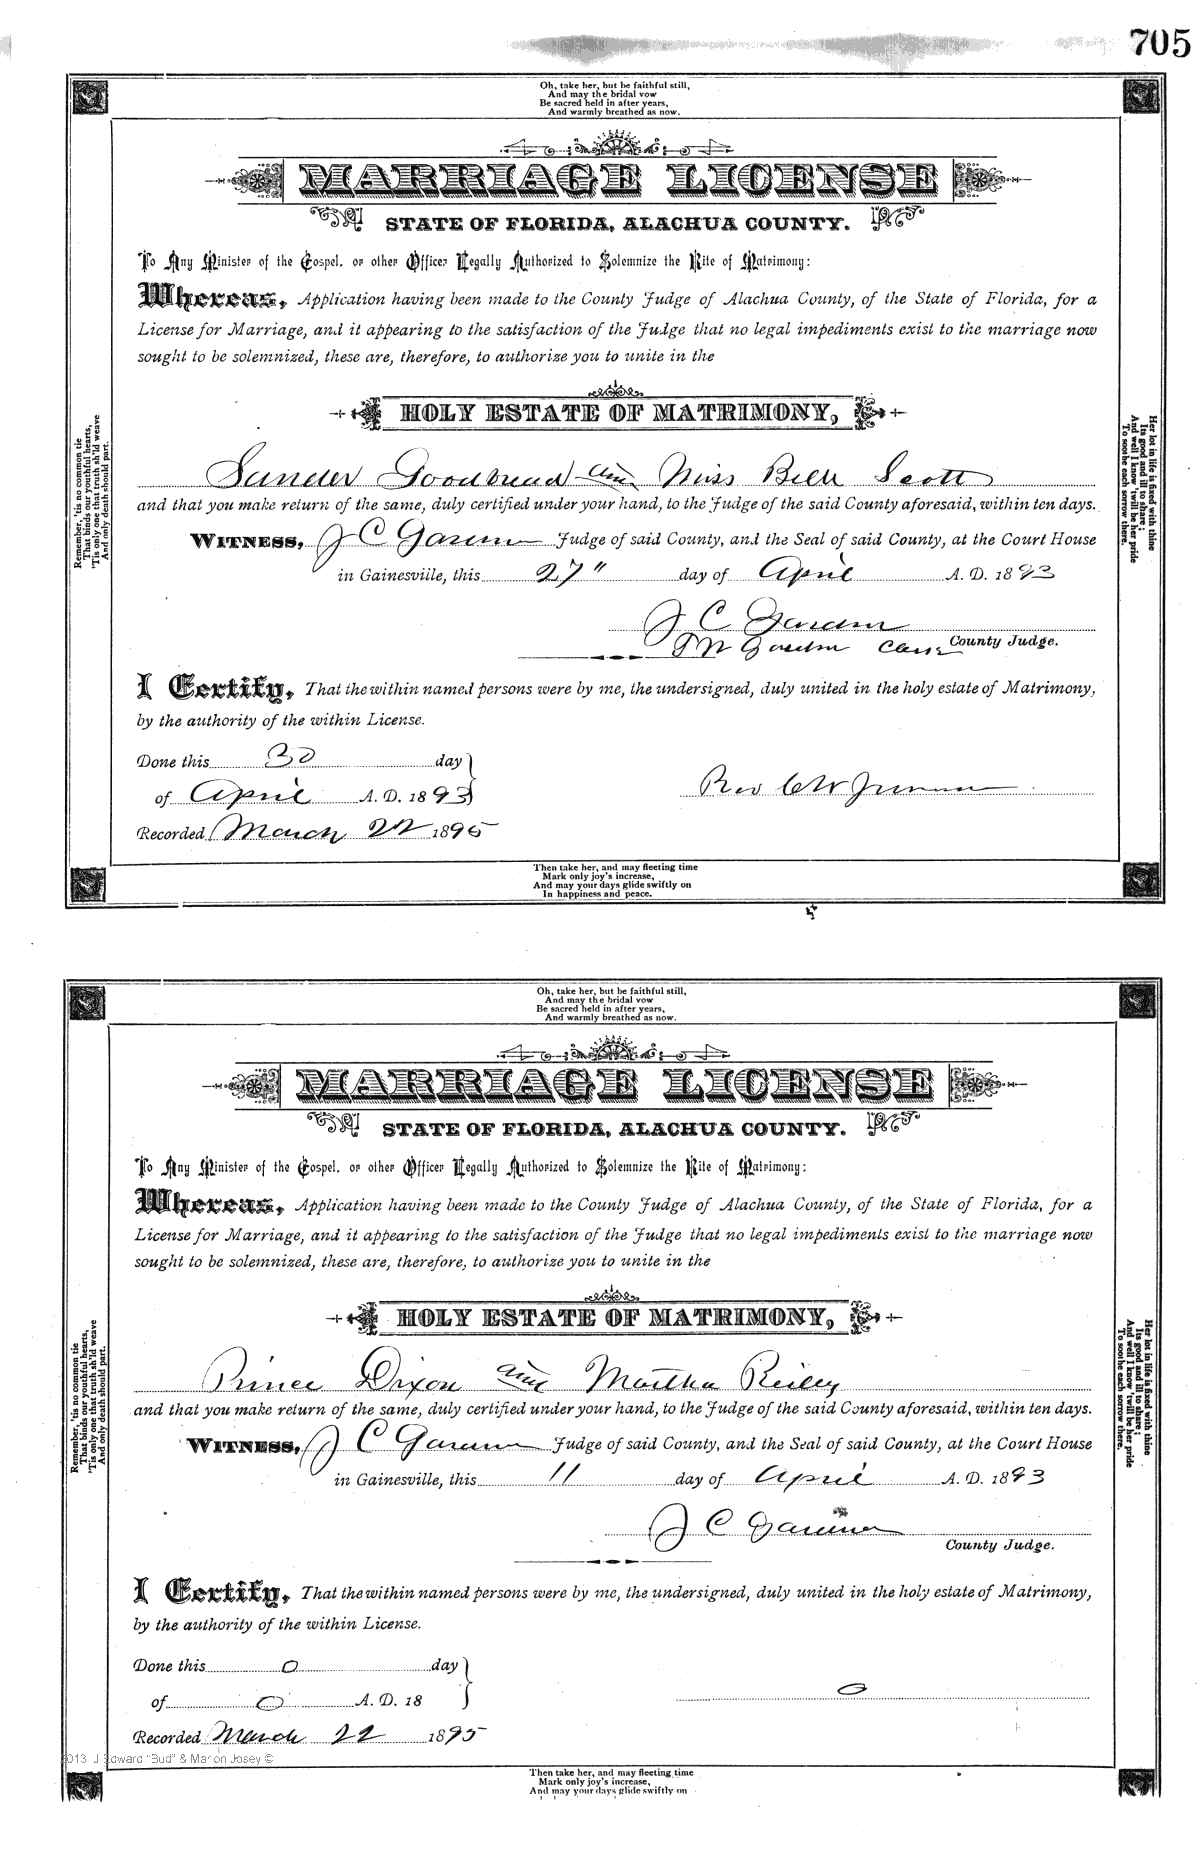 705
Oh, take her, but be faithful still,
And may the bridal vow
Be sacred held in after years,
And warmly breathed as now.
MARRIAGE LICENSE
STATE OF FLORIDA, ALACHUA COUNTY.
To Any Minister of the Gospel, or other Officer Legally Authorized to Solemnize the Rite of Matrimony:
Whereas, Application having been made to the County Judge of Alachua County, of the State of Florida, for a
License for Marriage, and it appearing to the satisfaction of the Judge that no legal impediments exist to the marriage now
sought to be solemnized, these are, therefore, to authorize you to unite in the
HOLY ESTATE OF MATRIMONY,
Sander Goodbread and Miss Bell Scott
and that you make return of the same, duly certified under your hand, to the Judge of the said County aforesaid, within ten days.
WITNESS, J C Gardner Judge of said County, and the Seal of said County, at the Court House
in Gainesville, this 27" day of April A. D. 1893
J C Gardner
County Judge.
I Certify, That the within named persons were by me, the undersigned, duly united in the holy estate of Matrimony,
by the authority of the within License.
Done this 30 day
of April A. D. 1893
Rev C W
Recorded March 22 1895
Remember, 'tis no common tie
That binds our youthful hearts,
'Tis only one that truth sh'ld weave
And only death should part.
Her lot in life is fixed with thine
Its good and ill to share;
And well I know 'twill be her pride
To soothe each sorrow there.
Then take her, and may fleeting time
Mark only joy's increase,
And may your days glide swiftly on
In happiness and peace.
Oh, take her, but be faithful still,
And may the bridal vow
Be sacred held in after years,
And warmly breathed as now.
MARRIAGE LICENSE
STATE OF FLORIDA, ALACHUA COUNTY.
To Any Minister of the Gospel, or other Officer Legally Authorized to Solemnize the Rite of Matrimony:
Whereas, Application having been made to the County Judge of Alachua County, of the State of Florida, for a
License for Marriage, and it appearing to the satisfaction of the Judge that no legal impediments exist to the marriage now
sought to be solemnized, these are, therefore, to authorize you to unite in the
HOLY ESTATE OF MATRIMONY,
Prince Dixon and Martha Reiley
and that you make return of the same, duly certified under your hand, to the Judge of the said County aforesaid, within ten days.
WITNESS, J C Gardner Judge of said County, and the Seal of said County, at the Court House
in Gainesville, this 11 day of April A. D. 1893
J C Gardner
County Judge.
I Certify, That the within named persons were by me, the undersigned, duly united in the holy estate of Matrimony,
by the authority of the within License.
Done this 0 day
of 0 A. D. 18
0
Recorded March 22 1895
Remember, 'tis no common tie
That binds our youthful hearts,
'Tis only one that truth sh'ld weave
And only death should part.
Her lot in life is fixed with thine
Its good and ill to share;
And well I know 'twill be her pride
To soothe each sorrow there.
2013 J Edward "Bud" & Marion Josey ©
Then take her, and may fleeting time
Mark only joy's increase,
And may your days glide swiftly on